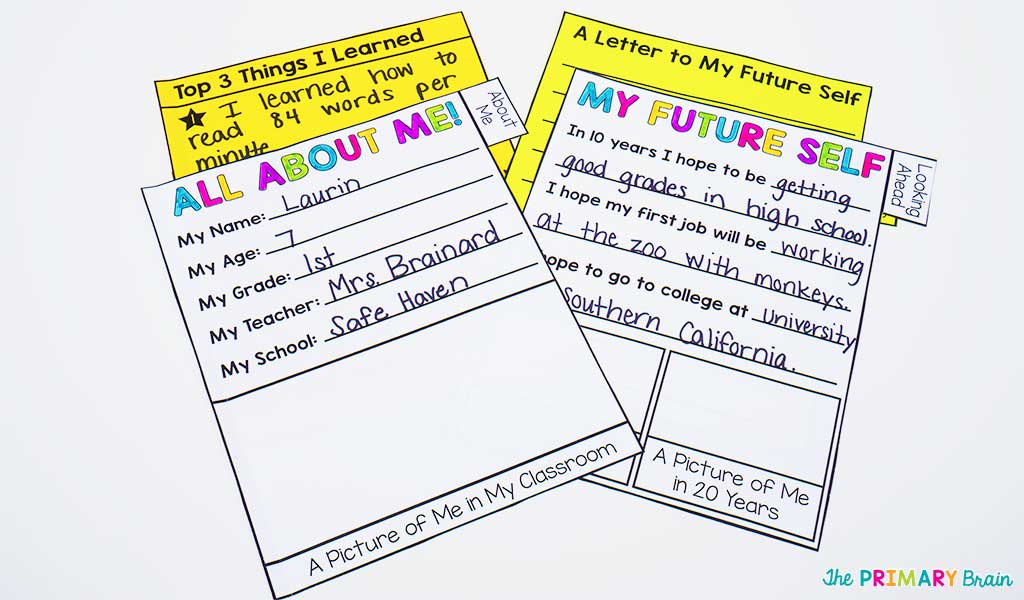 Top 3 Things I Learned
1 I learned how to
read 84 words per
minute
About
Me
ALL ABOUT ME!
My Name: Laurin
My Age: 7
My Grade: 1st
My Teacher: Mrs. Brainard
My School: Safe Haven
A Picture of Me in My Classroom
A Letter to My Future Self
Looking
Ahead
MY FUTURE SELF
In 10 years I hope to be getting
good grades in high school.
I hope my first job will be working
at the zoo with monkeys.
hope to go to college at University
Southern California.
A Picture of Me
in 20 Years
The PRIMARY Brain